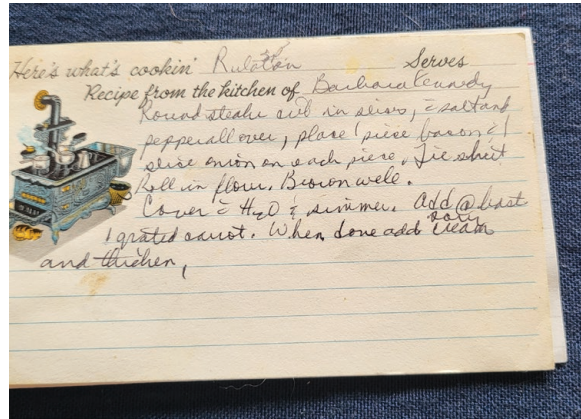 Here's what's cookin' Rulaton Serves
Recipe from the kitchen of Barbara Kennedy
Round steak cut in slices, salt and
pepper all over, place 1 piece bacon & 1
slice onion on each piece. Tie shut
Roll in flour. Brown well.
Cover c̄ H2O & simmer. Add @ least
1 grated carrot. When done add sour cream
and thicken,